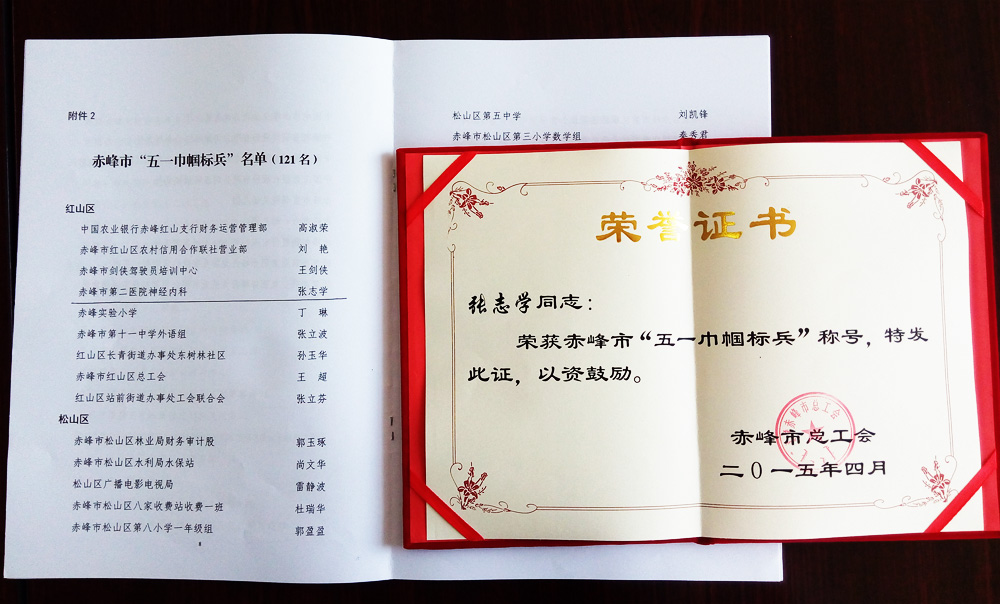 附件2
赤峰市“五一巾帼标兵”名单（121名）
红山区
中国农业银行赤峰红山支行财务运营管理部 高淑荣
赤峰市红山区农村信用合作联社营业部 刘 艳
赤峰市剑侠驾驶员培训中心 王剑侠
赤峰市第二医院神经内科 张志学
赤峰实验小学 丁 琳
赤峰市第十一中学外语组 张立波
红山区长青街道办事处东树林社区 孙玉华
赤峰市红山区总工会 王 超
红山区站前街道办事处工会联合会 张立芬
松山区
赤峰市松山区林业局财务审计股 郭玉琢
赤峰市松山区水利局水保站 尚文华
松山区广播电影电视局 雷静波
赤峰市松山区八家收费站收费一班 杜瑞华
赤峰市松山区第八小学一年级组 郭盈盈
8
松山区第五中学 刘凯锋
赤峰市松山区第三小学数学组 秦秀君
荣誉证书
张志学同志：
荣获赤峰市“五一巾帼标兵”称号，特发
此证，以资鼓励。
赤峰市总工会
赤峰市总工会
二〇一五年四月